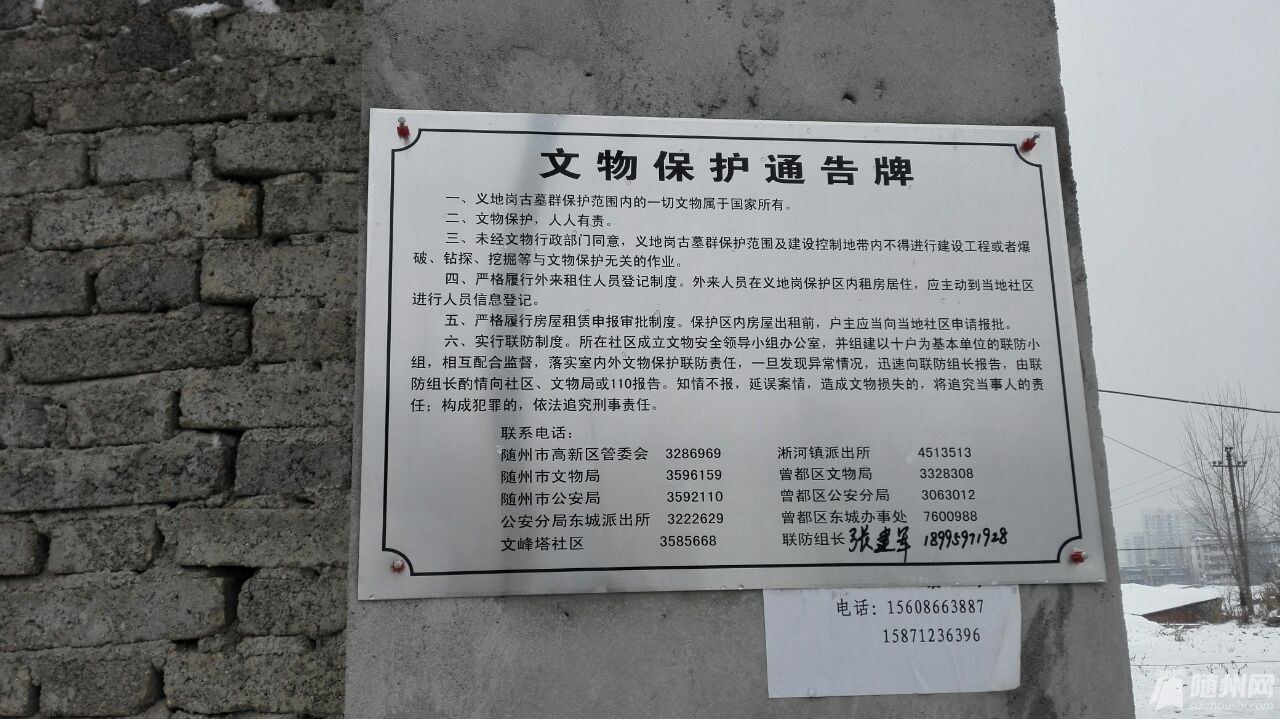 文物保护通告牌
一、义地岗古墓群保护范围内的一切文物属于国家所有。
二、文物保护，人人有责。
三、未经文物行政部门同意，义地岗古墓群保护范围及建设控制地带内不得进行建设工程或者爆
破、钻探、挖掘等与文物保护无关的作业。
四、严格履行外来租住人员登记制度。外来人员在义地岗保护区内租房居住，应主动到当地社区
进行人员信息登记。
五、严格履行房屋租赁申报审批制度。保护区内房屋出租前，户主应当向当地社区申请报批。
六、实行联防制度。所在社区成立文物安全领导小组办公室，并组建以十户为基本单位的联防小
组，相互配合监督，落实室内外文物保护联防责任，一旦发现异常情况，迅速向联防组长报告，由联
防组长酌情向社区、文物局或110报告。知情不报，延误案情，造成文物损失的，将追究当事人的责
任；构成犯罪的，依法追究刑事责任。
联系电话：
随州市高新区管委会 3286969 淅河镇派出所 4513513
随州市文物局 3596159 曾都区文物局 3328308
随州市公安局 3592110 曾都区公安分局 3063012
公安分局东城派出所 3222629 曾都区东城办事处 7600988
文峰塔社区 3585668 联防组长 張建军 18995971928
电话：15608663887
15871236396
随州网
suizhoushi.com